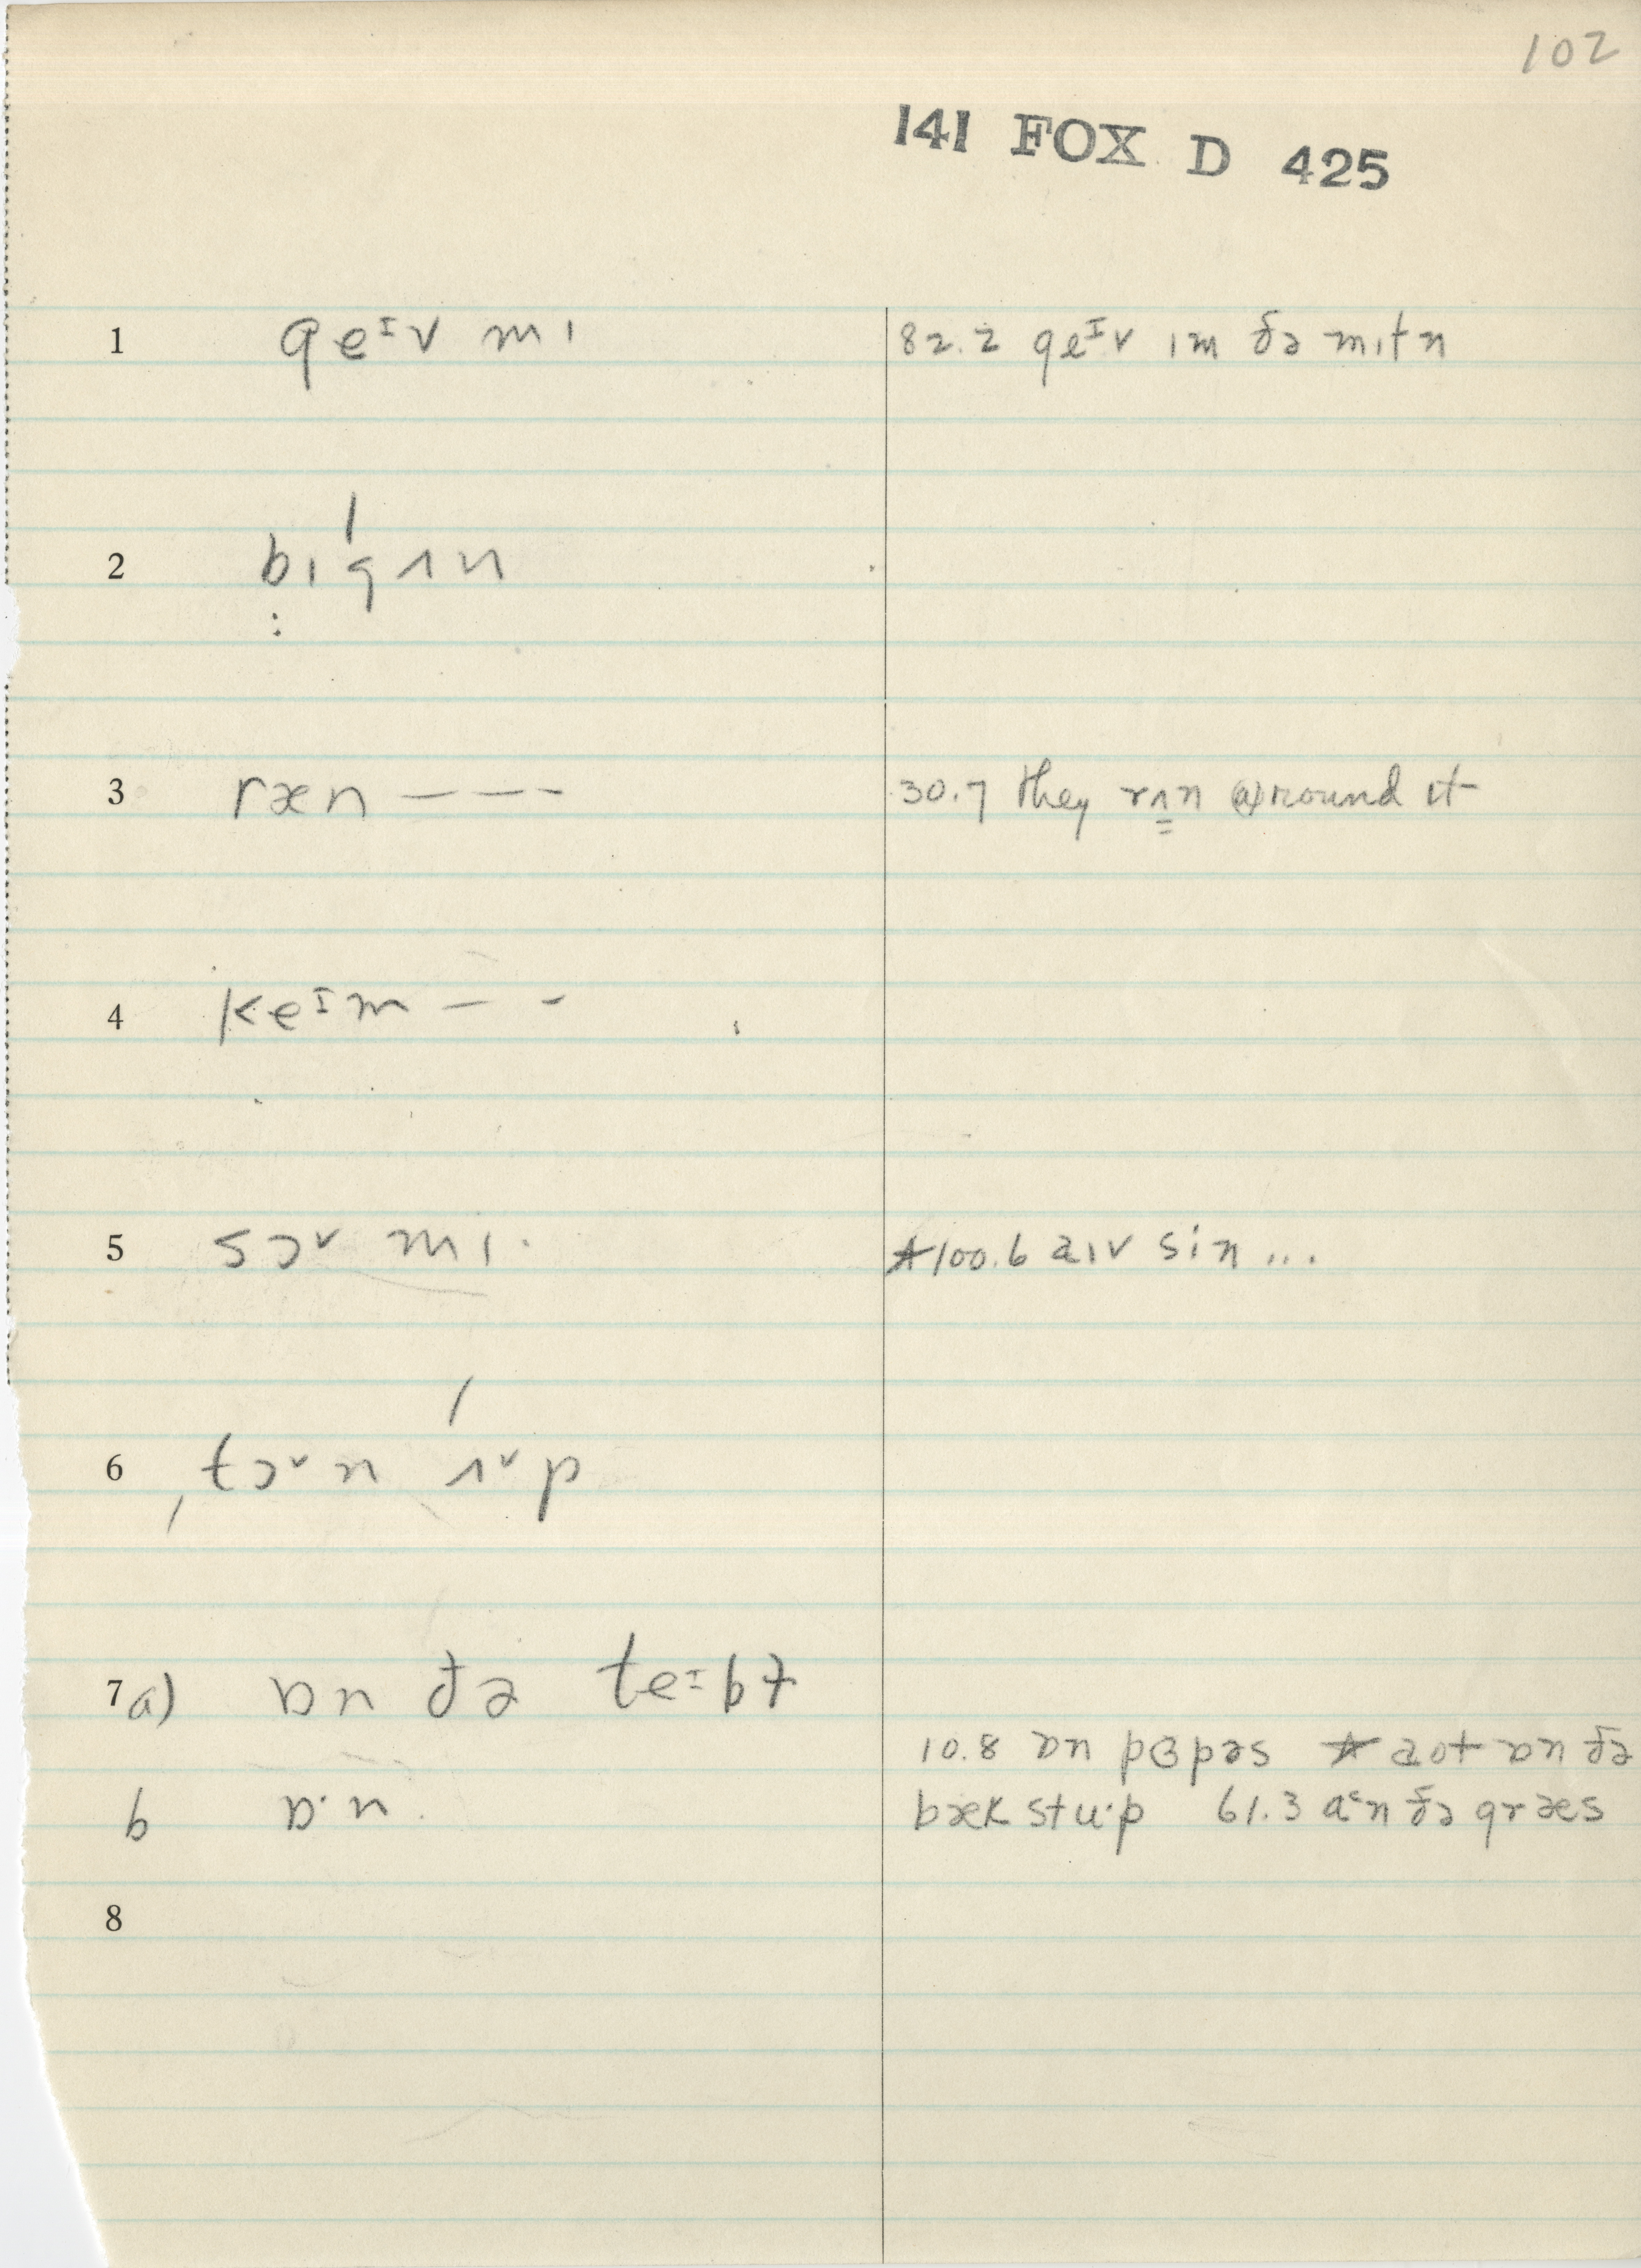 102
141 FOX D 425
1 geᶦv mɪ 82.2 geᶦv ɪm ðə mɪtn
2 bɪgʌn
3 ræn – – – 30.7 they rʌn (a)round it
4 keᶦm – –
5 sɔ˅ mɪ· ★100.6 aɪv sin ...
6 ˌtɔ˅n ʌ˅p
7 a) ɒn ðə teᶦbɫ
10.8 ɒn pɜpəs ★ aot ɒn ðə
b ɒ·n bæk stu·p 61.3 a˂n ðə græs
8